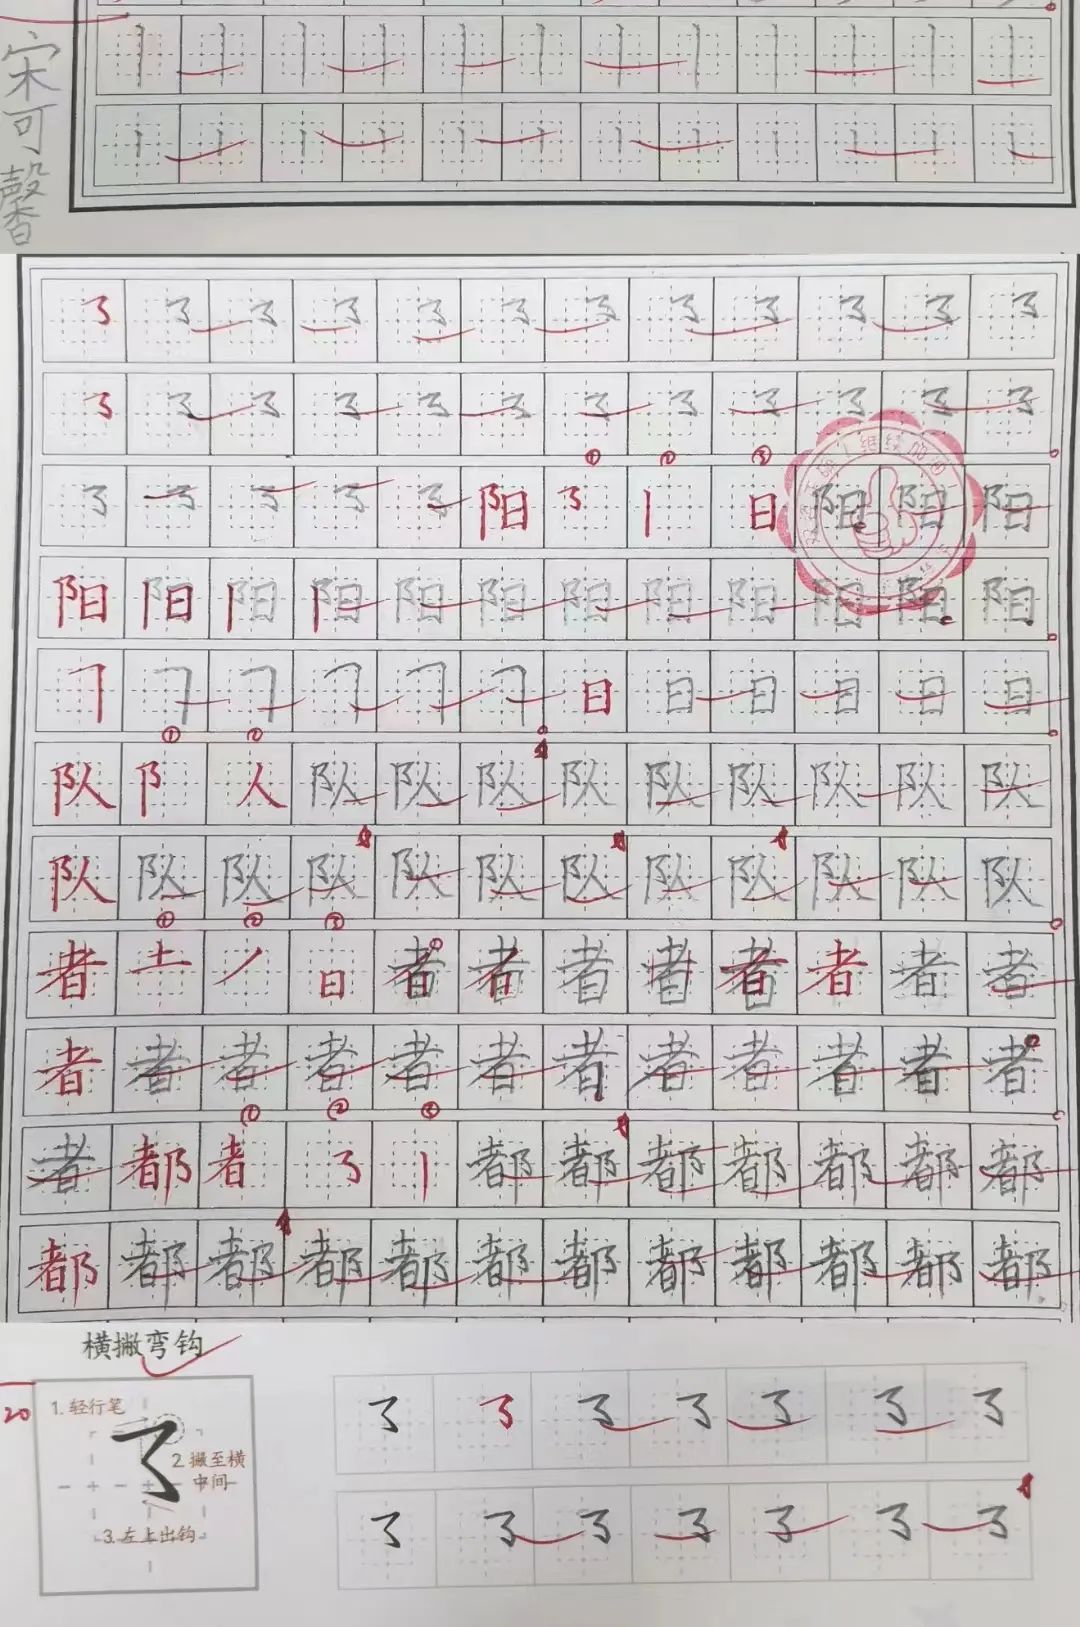 宋可馨
阳 日 阳 阳 阳
阳 阳 阳 阳 阳 阳 阳 阳 阳 阳 阳 阳
日 日 日 日 日 日
队 阝 人 队 队 队 队 队 队 队 队 队
队 队 队 队 队 队 队 队 队 队 队 队
① ② ③
者 日 者 者 者 者 者 者 者 者
者 者 者 者 者 者 者 者 者 者 者 者
者 都 者 都 都 都 都 都 都 都
都 都 都 都 都 都 都 都 都 都 都 都
横撇弯钩
20
1. 轻行笔
2. 撇至横
中间
3. 左上出钩